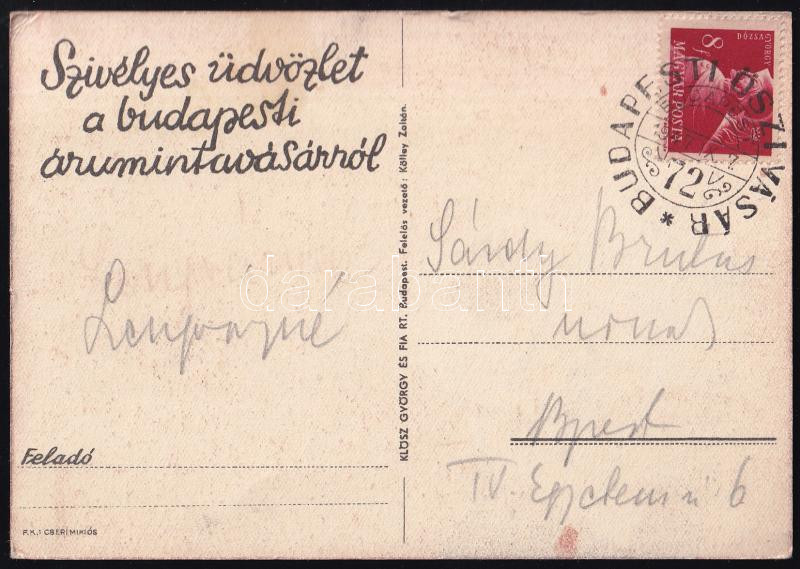 Szivélyes üdvözlet
a budapesti
árumintavásárról
Feladó
F.K.: CSERI MIKLÓS
KLÖSZ GYÖRGY ÉS FIA RT. Budapest. Felelős vezető: Kölley Zoltán.
GYÖRGY
8f
MAGYAR POSTA
BUDAPESTI ŐSZI VÁSÁR *
72
Sárdy Brutus
Bpest
IV. Egyetem u 6
darabanth